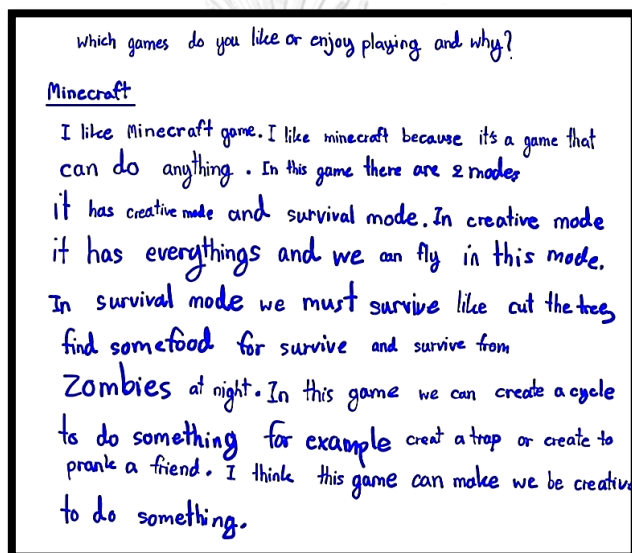 which games do you like or enjoy playing and why?
Minecraft
I like Minecraft game. I like minecraft because it's a game that
can do anything. In this game there are 2 modes
it has creative mode and survival mode. In creative mode
it has everythings and we can fly in this mode.
In survival mode we must survive like cut the trees
find somefood for survive and survive from
Zombies at night. In this game we can create a cycle
to do something for example creat a trap or create to
prank a friend. I think this game can make we be creative
to do something.